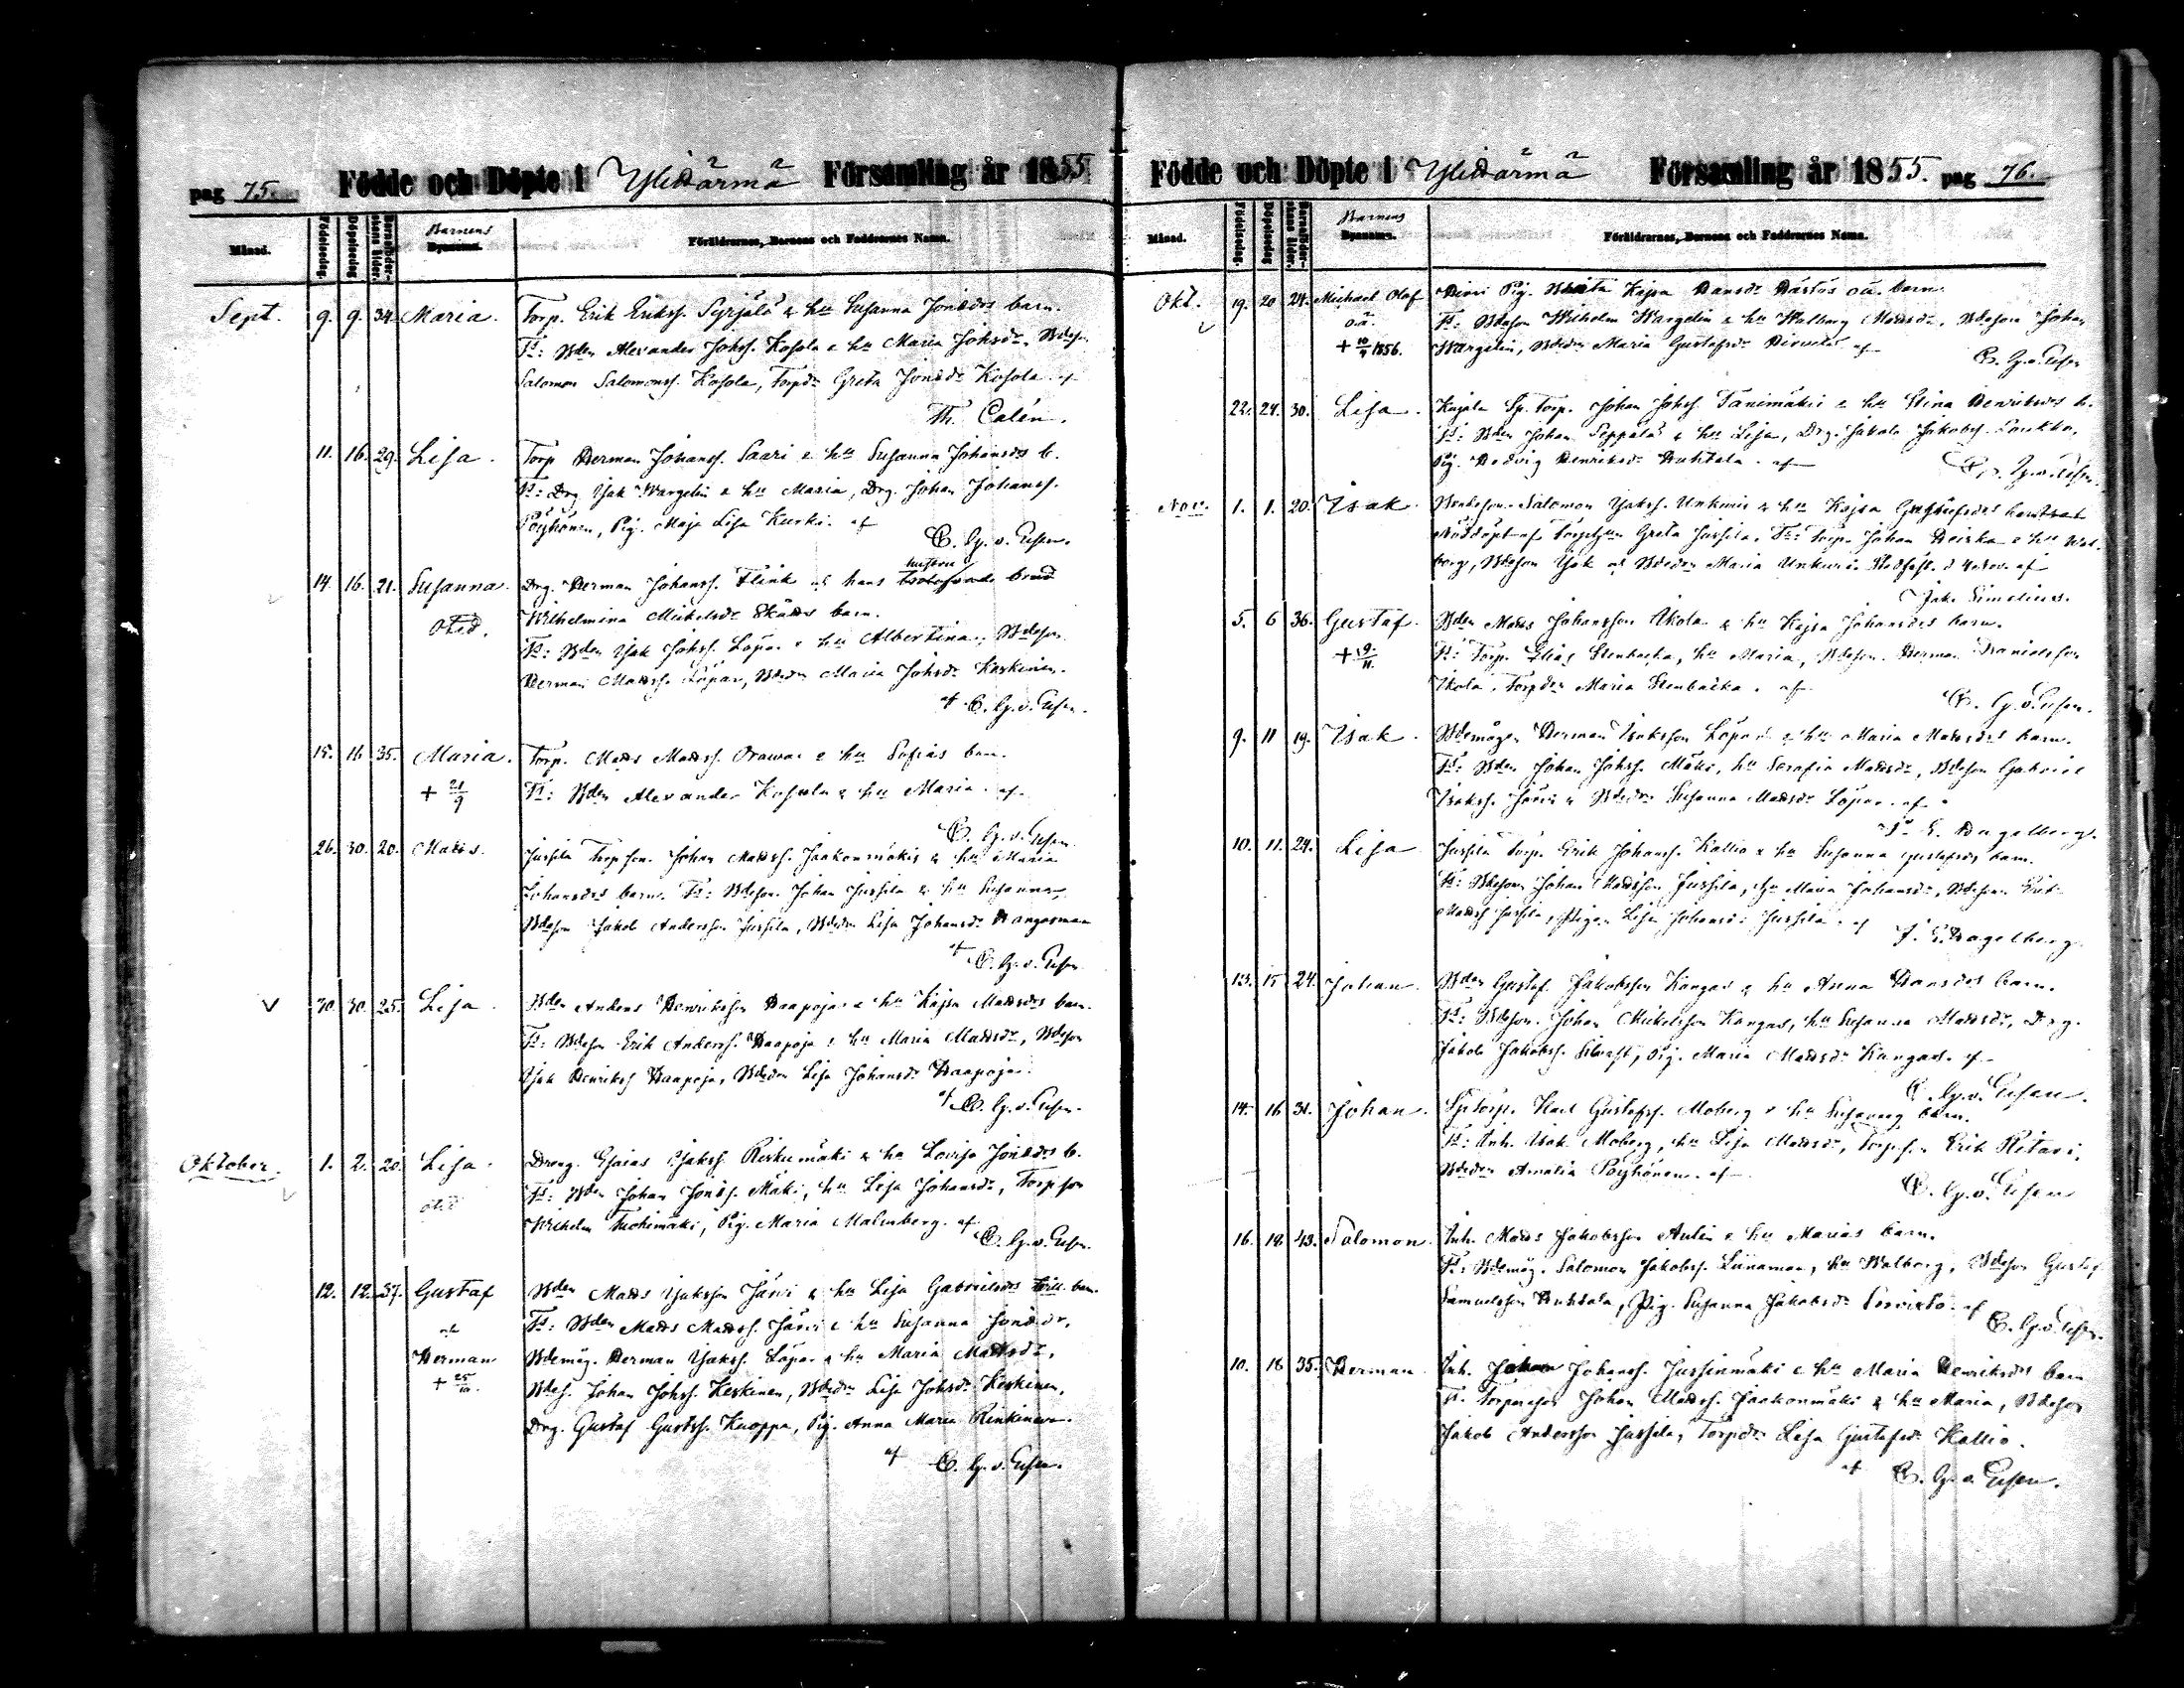 pag 75. Födde och Döpte i Ylihärmä Församling år 1855
Månad. Födelsedag. Döpelsedag Barnaföderskans ålder. Barnens Bynamn. Föräldrarnes, Barnens och Faddrarnes Namn.
Sept. 9. 9. 34. Maria. Torp. Erik Eriksf. Syrjälä & hu Susanna Jonædrs barn.
Ft: Bden Alexander Johsf. Kosola & hu Maria Johsdr, Bdesn
Salomon Salomonsf. Kosola, Torpdr Greta Jonædr Kosola. af
Th. Calén.
11. 16. 29. Lisa. Torp Herman Johansf. Saari & hu Susanna Johansdrs b.
Ft: Drg Isak Wargelin & hu Maria, Drg. Johan Johansf.
Pöyhönen, Pig. Maja Lisa Kurki. af
C. G. v. Essen.
hustru
14. 16. 21. Susanna. Drg. Herman Johansf. Flink och hans brud
Oäkta. Wilhelmina Mickelsdr barn.
Ft: Bden Isak Johsf. Löpar & hu Albertina, Bdeson
Herman Mattsf. Löpar, Bdedr Maria Johsdr Keskinen.
af C. G. v. Essen.
15. 16 35. Maria. Torp. Matts Mattsf. Orawa & hu Sofias barn.
+ 21/9 Ft: Bden Alexander Kosola & hu Maria. af
C. G. v. Essen
26. 30. 20. Matts. Jussila Torpson Johan Mattsf. Jaakonmäkis & hu Maria
Johansdrs barn. Ft: Bdeson Johan Jussila & hu Susanna,
Bdeson Jakob Andersson Jussila, Bdedr Lisa Johansdr Kangasmaa
af C. G. v. Essen
30. 30. 25. Lisa. Bden Anders Henriksson Haapoja & hu Kajsa Mattsdrs barn.
Ft: Bdeson Erik Andersf. Haapoja & hu Maria Mattsdr, Bdeson
Isak Henriksf Haapoja, Bdedr Lisa Johansdr Haapoja.
af C. G. v. Essen.
Oktober. 1. 2. 20. Lisa. Dreng. Esaias Isaksf. Riskumäki & hu Lovisa Jonædrs b.
Ft: Bden Johan Jonæsf. Mäki, hu Lisa Johansdr, Torpson
Wilhelm Tuohimäki, Pig. Maria Malmberg. af
C. G. v. Essen.
12. 12. 37. Gustaf Bden Matts Isaksson Järvi & hu Lisa Gabrielsdrs till. barn.
och Ft: Bden Matts Mattsf. Järvi & hu Susanna Jonædr,
Herman Bdemåg. Herman Isaksf. Löpar & hu Maria Mattsdr,
+ 25/10. Bdes. Johan Johsf. Keskinen, Bdedr Lisa Johsdr Keskinen,
Drg. Gustaf Gustsf. Kuoppa, Pig. Anna Maria Rinkinen.
af C. G. v. Essen.
Födde och Döpte i Ylihärmä Församling år 1855. pag 76.
Månad. Födelsedag. Döpelsedag Barnaföderskans ålder. Barnens Bynamn. Föräldrarnes, Barnens och Faddrarnes Namn.
Okt. 19. 20 24. Michael Olof Pig. Kajsa Hansdr oä. barn.
o.ä. Ft: Bdeson Wilhelm Wargelin & hu Walborg Mattsdr, Bdeson Johan
+ 10/9 1856. Wargelin, Bdedr Maria Gustafsdr af
C. G. v. Essen
22. 24. 30. Lisa. Sp. Torp. Johan Johsf. Tanimäkis & hu Stina Henriksdrs b.
Ft: Bden Johan Seppälä & hu Lisa, Drg. Jakob Jakobsf. Loukko,
Pig. Hedvig Henriksdr Huhtala. af C. G. v. Essen.
Nov. 1. 1. 20. Isak. Bondeson Salomon Isaksf. Unkuris & hu Kajsa
Nöddöpt af Greta Jussila. Ft: Torp. Johan & hu Wal-
borg, Bdeson Isak och Bdedr Maria Unkuri. Stadfäst. d 4 Nov. af
Jak. Simelius.
5. 6 36. Gustaf. Bden Matts Johansson Ekola & hu Kajsa Johansdrs barn.
+ 9/11. Ft: Torp. Elias Stenbacka, hu Maria, Bdeson. Herman Danielsson
Ekola, Torpdr Maria Stenbacka. af
C. G. v. Essen.
9. 11 19. Isak. Bdemågen Herman Isaksson Löpar & hu Maria Mattsdrs barn.
Ft: Bden Johan Johsf. Mäki, hu Serafia Mattsdr, Bdeson Gabriel
Isaksf. Järvi & Bdedr Susanna Mattsdr Löpar. af
J. E. Hagelberg.
10. 11. 24. Lisa Jussila Torp. Erik Johansf. Kallio & hu Susanna Gustafsdrs barn.
Ft: Bdeson Johan Mattsson Jussila, hu Maria Johansdr, Bdeson Erik
Mattsf Jussila, Pigan Lisa Johansdr Jussila. af
J. E. Hagelberg
13. 15 24. Johan. Bden Gustaf Jakobsson Kangas & hu Anna Hansdrs barn.
Ft: Bdeson. Johan Mickelsson Kangas, hu Susanna Mattsdr, Drg.
Jakob Jakobsf. Pig. Maria Mattsdr Kangas. af
C. G. v. Essen.
14. 16 31. Johan. Sptorp. Karl Gustafsf. Moberg & hu Susannæ barn.
Ft: Inh. Isak Moberg, hu Lisa Mattsdr, Torpson Erik Ritari,
Bdedr Amalia Pöyhönen. af
C. G. v. Essen
16. 18. 43. Salomon. Inh. Matts Jakobsson Aulin & hu Marias barn.
Ft: Bdemåg. Salomon Jakobsf. Liinamaa, hu Walborg, Bdeson Gustaf
Samuelsson Huhtala, Pig. Susanna Jakobsdr af
C. G. v. Essen.
10. 18 35. Herman. Inh. Johan Johansf. Jussinmäki & hu Maria Henriksdrs barn
Ft. Torpareson Johan Mattsf. Jaakonmäki & hu Maria, Bdeson
Jakob Andersson Jussila, Torpdr Lisa Gustafsdr Kallio.
af C. G. v. Essen.